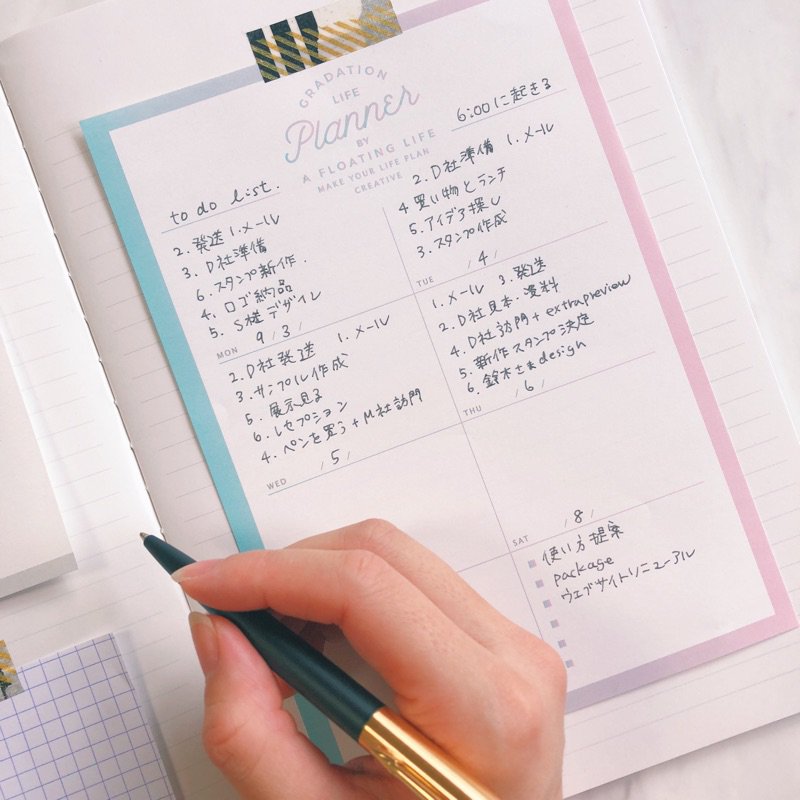 GRADATION
LIFE
Planner
BY
A FLOATING LIFE
MAKE YOUR LIFE PLAN
CREATIVE
6:00に起きる
to do list.
2. 発送 1. メール
3. D社準備
6. スタンプ新作.
4. ロゴ納品
5. S様デザイン
MON 9/3/
2. D社準備 1. メール
4 買い物とランチ
5. アイデア探し
3. スタンプ作成
TUE /4/
2. D社発送 1. メール
3. サンプル作成
5. 展示見る
6. レセプション
4. ペンを買う+M社訪問
WED /5/
1. メール 3. 発送
2. D社見本・資料
4. D社訪問+extrapreview
5. 新作スタンプ決定
6. 鈴木さまdesign
THU /6/
SAT /8/
使い方提案
package
ウェブサイトリニューアル